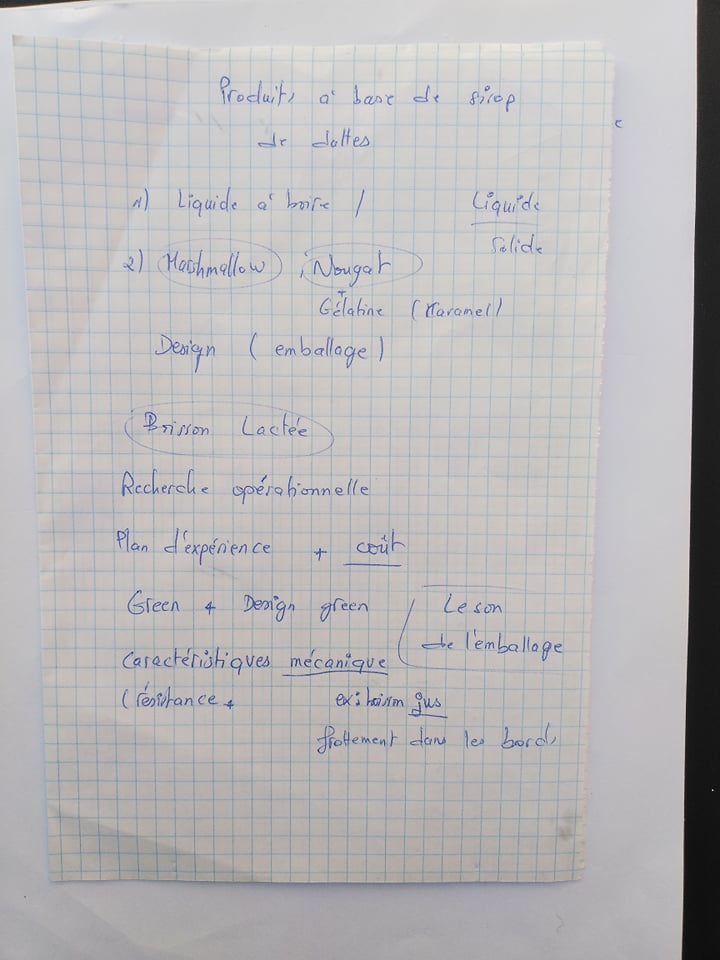 Produits à base de sirop
de dattes
1) Liquide à boire / Liquide
Solide
2) Marshmallow , Nougat
+
Gélatine (Karamel)
Design (emballage)
Boisson Lactée
Recherche opérationnelle
Plan d'expérience + coût
Green + Design green
Le son
de l'emballage
Caractéristiques mécanique
(résistance +
ex: boisson jus
frottement dans les bords